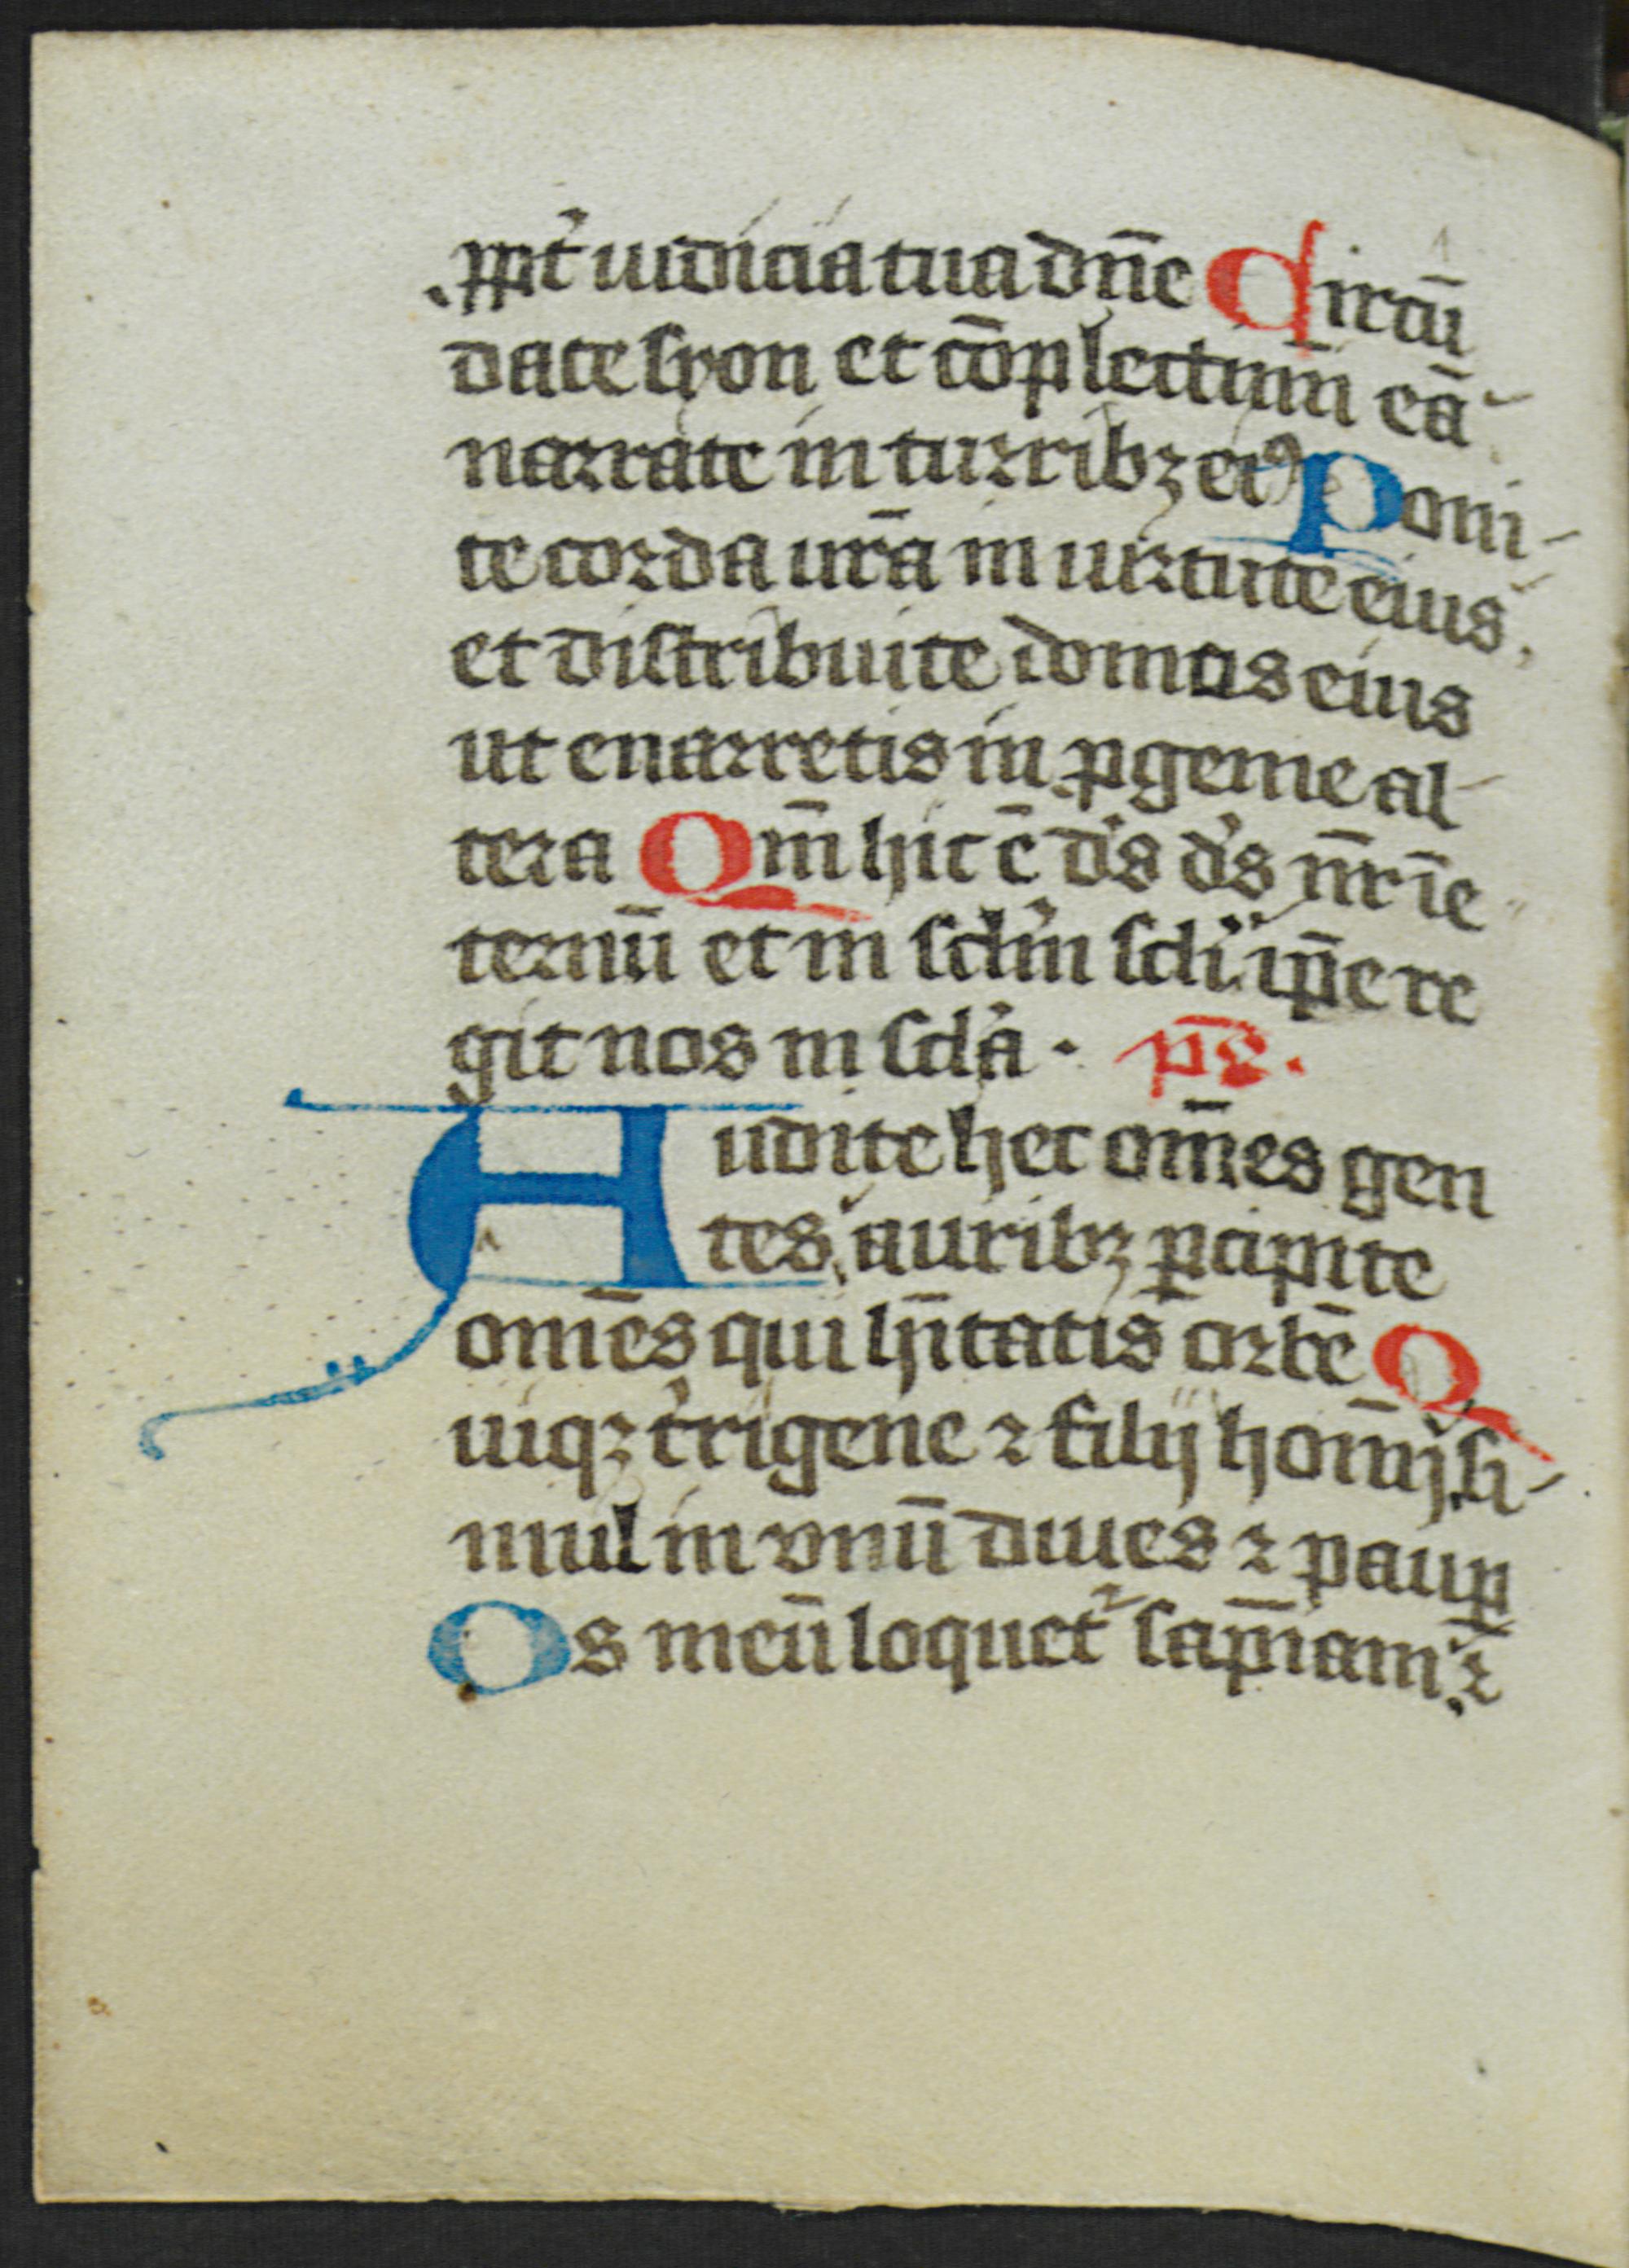 ꝓpt᷑ iudicia tua dn̄e Circū
date syon et cōplectimī eā
narrate in turribꝫ eiꝰ Poni-
te corda ur̄a in uirtute eius
et distribuite domos eius
ut enarretis in ꝓgenie al-
tera Qm̄ hic ē d's d's nr̄ ī e
ternū et in sclm̄ scli ip̄e re
git nos in scl'a · pˢ.
Audite hec om̄es gen
tes auribꝫ ꝑcipite
om̄es qui hītatis orbē Q
uiqꝫ t'rigene ⁊ filij homī si-
mul in vnū diues ⁊ pauꝑ
Os meū loquet᷑ sap̄iam ⁊